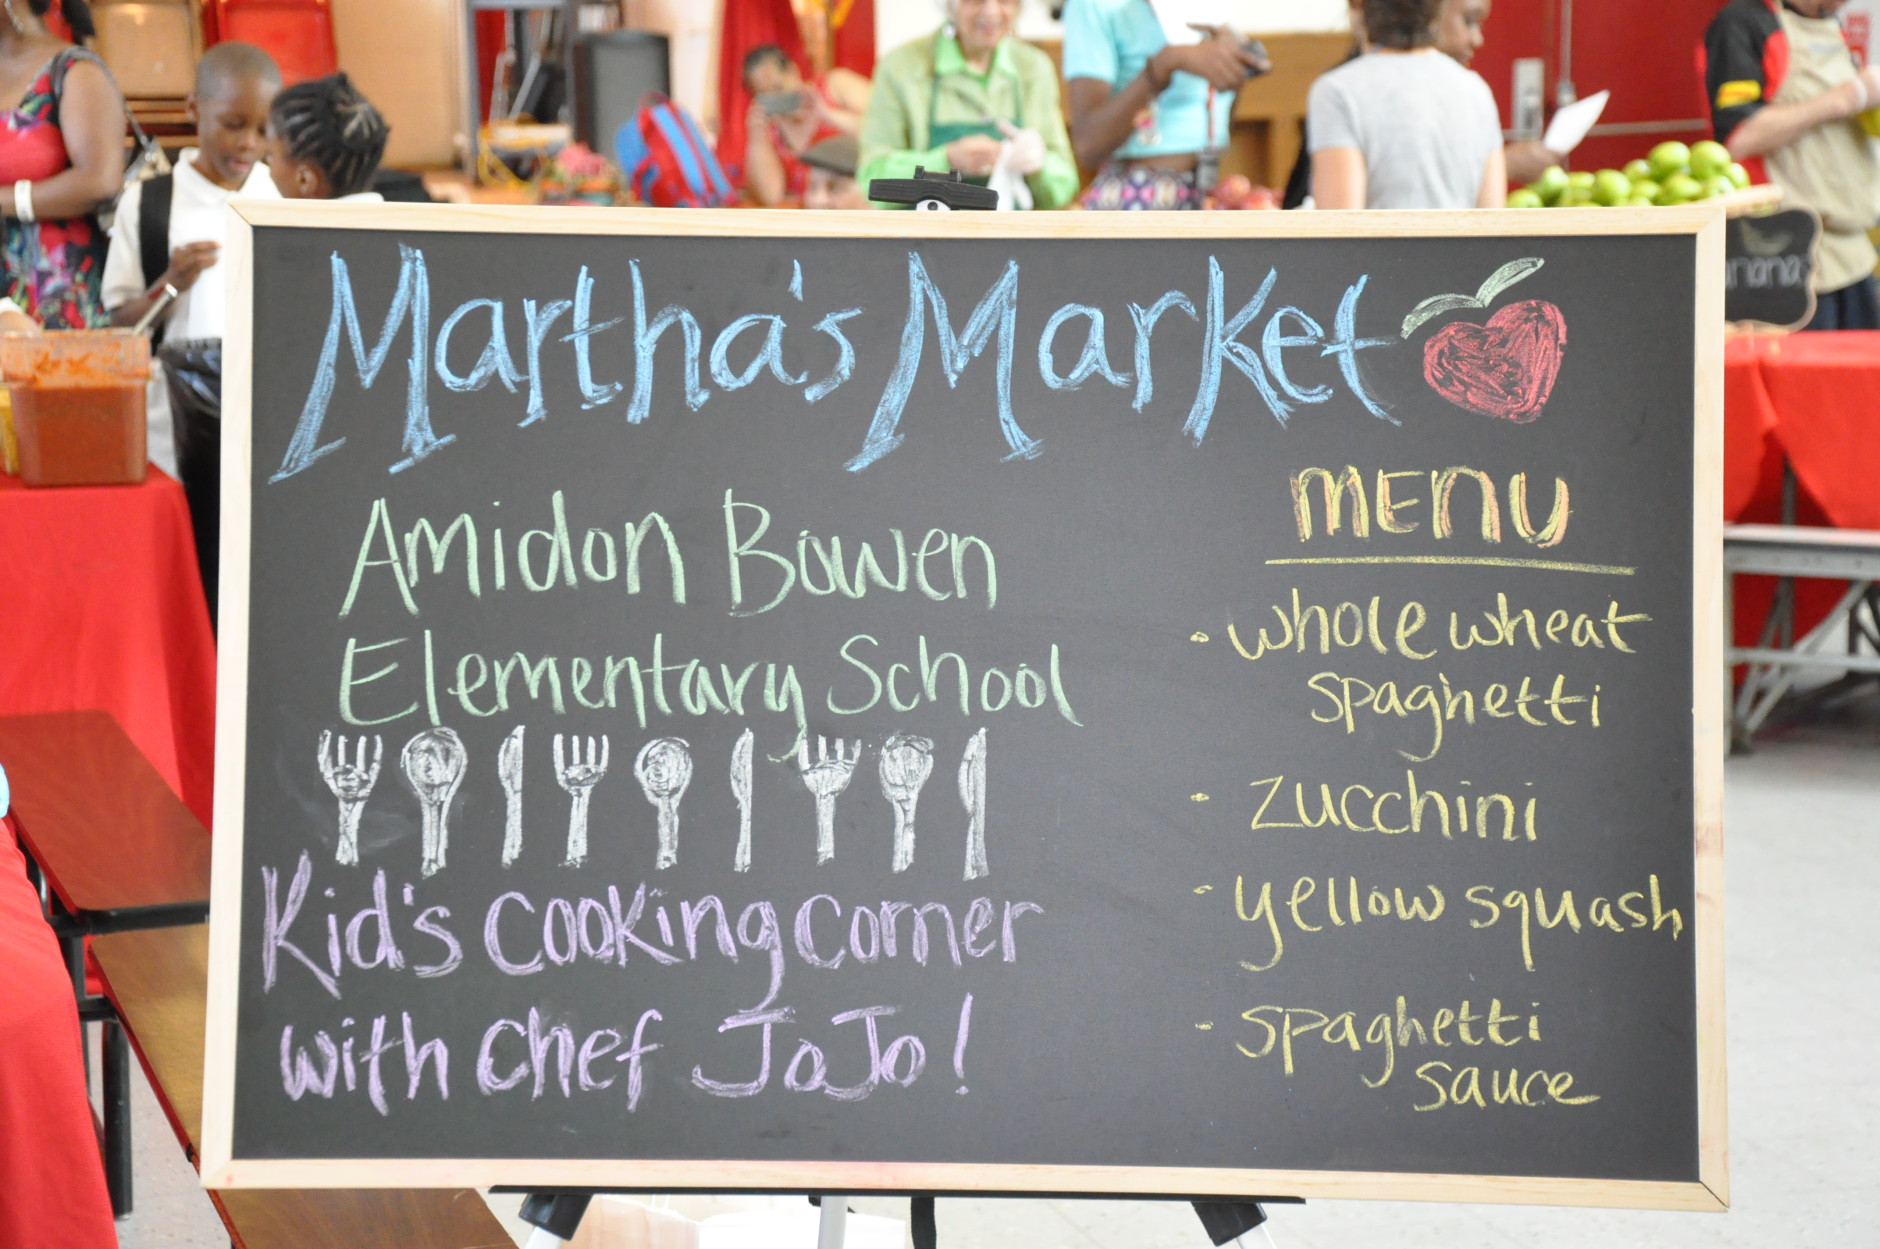 Martha's Market
Amidon Bowen
Elementary School
Kid's Cooking Corner
with Chef JoJo!
MENU
· whole wheat
spaghetti
- zucchini
- yellow squash
- spaghetti
sauce